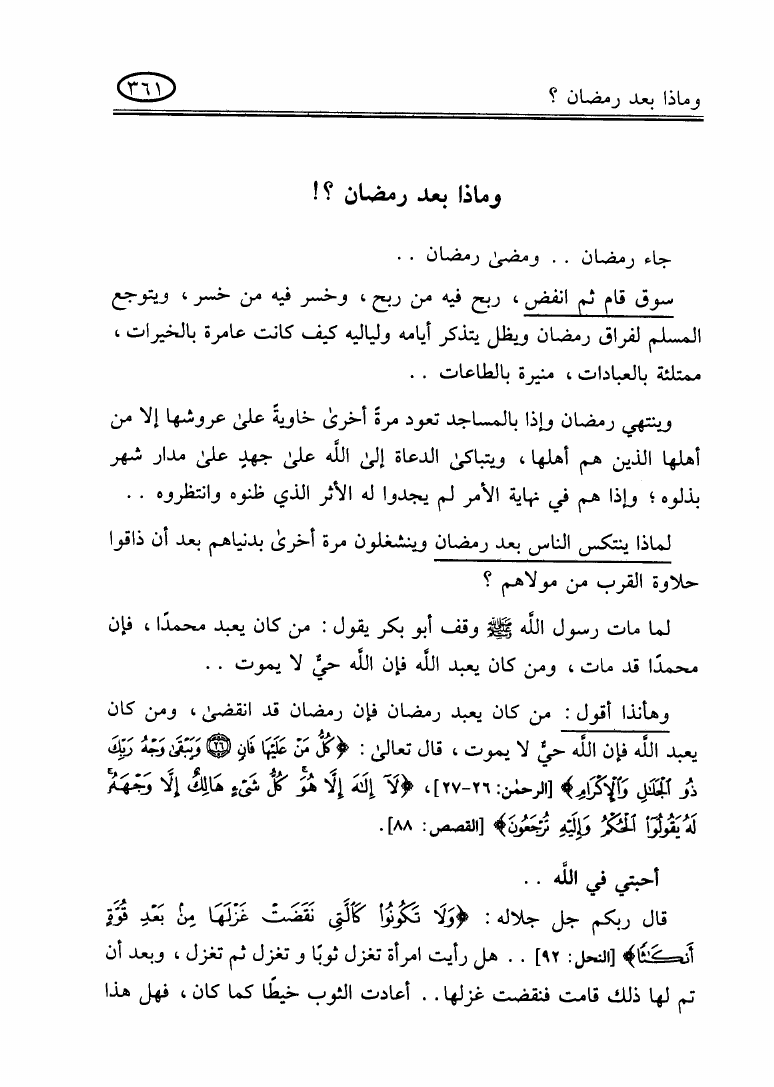 وماذا بعد رمضان ؟
٣٦١
وماذا بعد رمضان ؟!
جاء رمضان .. ومضىٰ رمضان ..
سوق قام ثم انفض ، ربح فيه من ربح ، وخسر فيه من خسر ، ويتوجع
المسلم لفراق رمضان ويظل يتذكر أيامه ولياليه كيف كانت عامرة بالخيرات ،
ممتلئة بالعبادات ، منيرة بالطاعات ..
وينتهي رمضان وإذا بالمساجد تعود مرةً أخرىٰ خاويةً علىٰ عروشها إلا من
أهلها الذين هم أهلها ، ويتباكىٰ الدعاة إلىٰ اللَّه علىٰ جهدٍ علىٰ مدار شهر
بذلوه ؛ وإذا هم في نهاية الأمر لم يجدوا له الأثر الذي ظنوه وانتظروه ..
لماذا ينتكس الناس بعد رمضان وينشغلون مرة أخرىٰ بدنياهم بعد أن ذاقوا
حلاوة القرب من مولاهم ؟
لما مات رسول اللَّه ﷺ وقف أبو بكر يقول : من كان يعبد محمدًا ، فإن
محمدًا قد مات ، ومن كان يعبد اللَّه فإن اللَّه حيٌّ لا يموت ..
وهأنذا أقول : من كان يعبد رمضان فإن رمضان قد انقضىٰ ، ومن كان
يعبد اللَّه فإن اللَّه حيٌّ لا يموت ، قال تعالىٰ : ﴿كُلُّ مَنْ عَلَيْهَا فَانٍ ۝٢٦ وَيَبْقَىٰ وَجْهُ رَبِّكَ
ذُو ٱلْجَلَٰلِ وَٱلْإِكْرَامِ﴾ [الرحمٰن: ٢٦-٢٧] ، ﴿لَآ إِلَٰهَ إِلَّا هُوَ ۚ كُلُّ شَىْءٍ هَالِكٌ إِلَّا وَجْهَهُۥ ۚ
لَهُ ٱلْحُكْمُ وَإِلَيْهِ تُرْجَعُونَ﴾ [القصص: ٨٨].
أحبتي في اللَّه ..
قال ربكم جل جلاله : ﴿وَلَا تَكُونُوا۟ كَٱلَّتِى نَقَضَتْ غَزْلَهَا مِنۢ بَعْدِ قُوَّةٍ
أَنكَٰثًا﴾ [النحل: ٩٢] .. هل رأيت امرأة تغزل ثوبًا و تغزل ثم تغزل ، وبعد أن
تم لها ذلك قامت فنقضت غزلها .. أعادت الثوب خيطًا كما كان ، فهل هذا